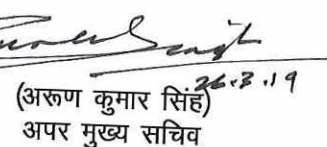 Singh
26.3.19
(अरूण कुमार सिंह)
अपर मुख्य सचिव